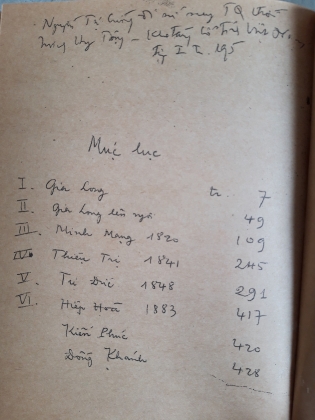 Nguyễn Tự Cường Đi sứ sang TQ thời
Tự I T. 195
Mục lục
I. Gia Long tr. 7
II. Gia Long lên ngôi 49
III. Minh Mạng 1820 109
IV. Thiệu Trị 1841 245
V. Tự Đức 1848 291
VI. Hiệp Hoà 1883 417
Kiến Phúc 420
Đồng Khánh 428